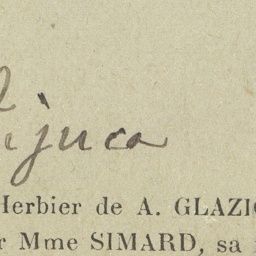 ijuca
Herbier de A. GLAZIO
r Mme SIMARD, sa